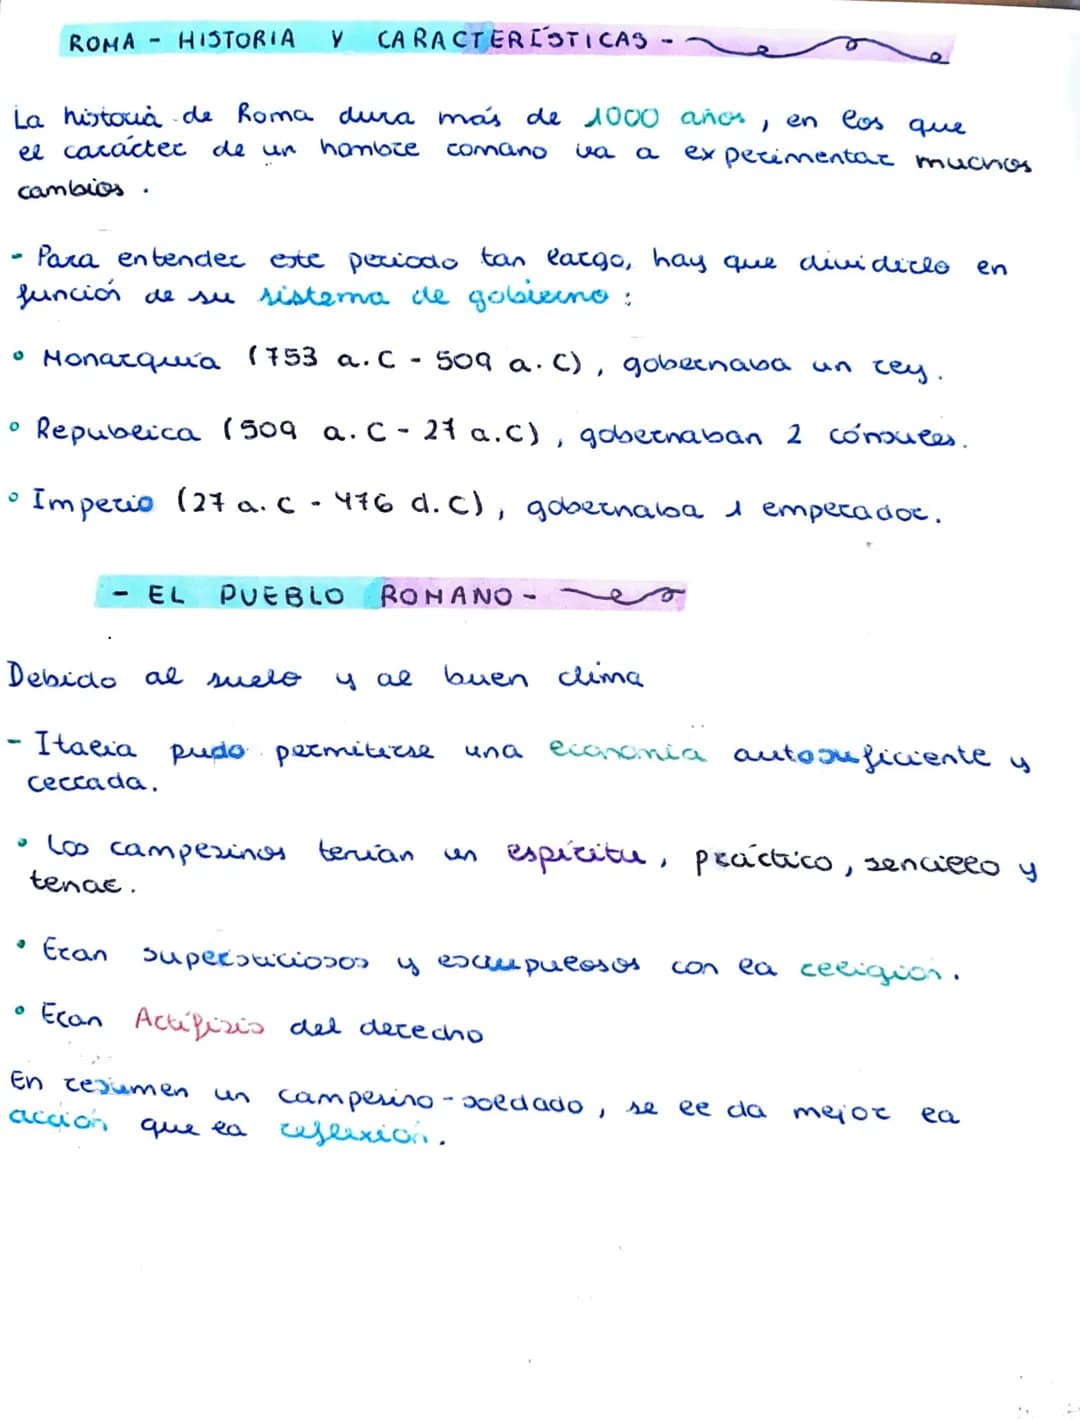 ROMA - HISTORIA Y CARACTERÍSTICAS -
La historia de Roma dura más de 1000 años, en los que
el carácter de un hombre romano va a experimentar muchos
cambios.
- Para entender este periodo tan largo, hay que dividirlo en
función de su sistema de gobierno:
• Monarquía (753 a.C - 509 a.C), gobernaba un rey.
• Republica (509 a.C - 27 a.C), gobernaban 2 cónsules.
• Imperio (27 a.C - 476 d.C), gobernaba 1 emperador.
- EL PUEBLO ROMANO -
Debido al suelo y al buen clima
- Italia pudo permitirse una economía autosuficiente y
cerrada.
• Los campesinos tenían un espíritu, práctico, sencillo y
tenaz.
• Eran supersticiosos y escrupulosos con la religión.
• Eran Artífisis del derecho
En resumen un campesino-soldado, se le da mejor la
acción que la reflexión.